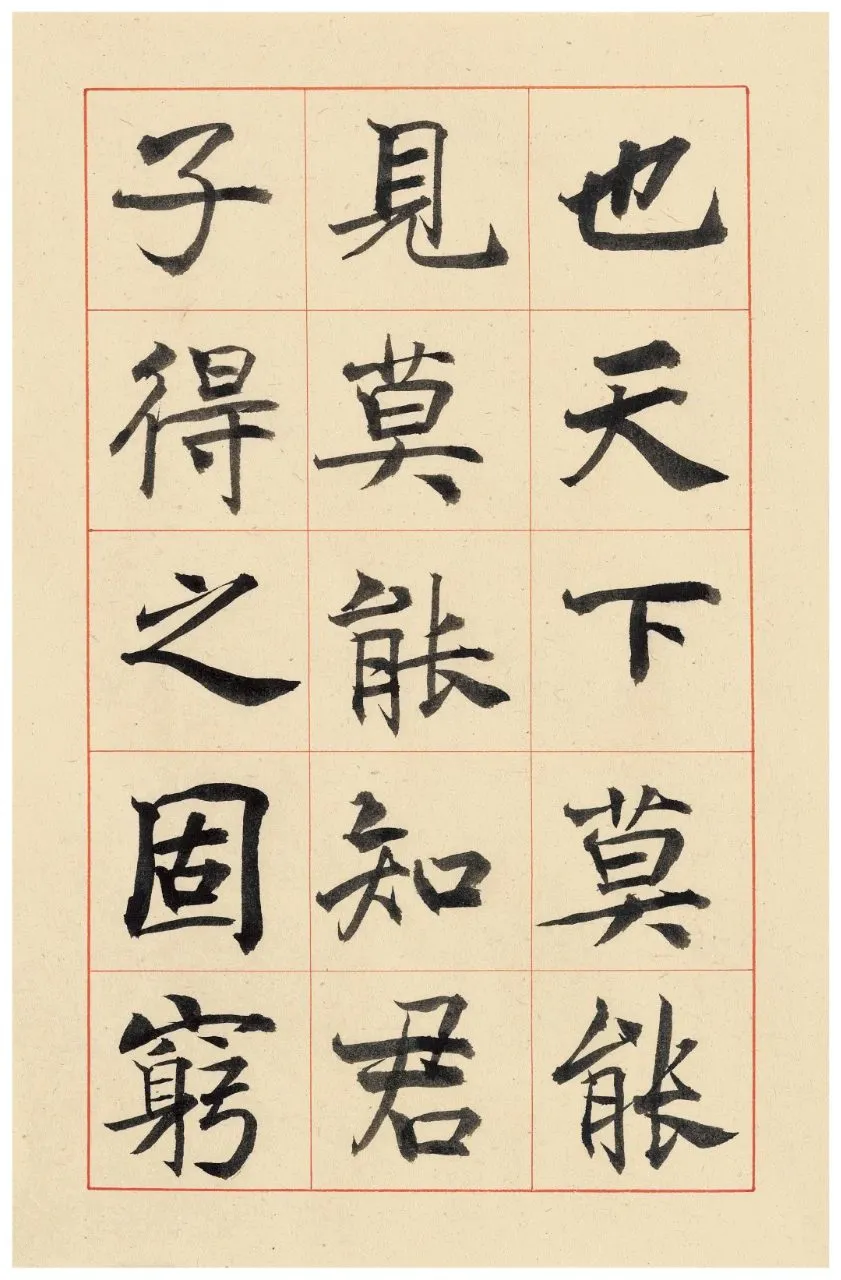 也天下莫能
見莫能知君
子得之固窮